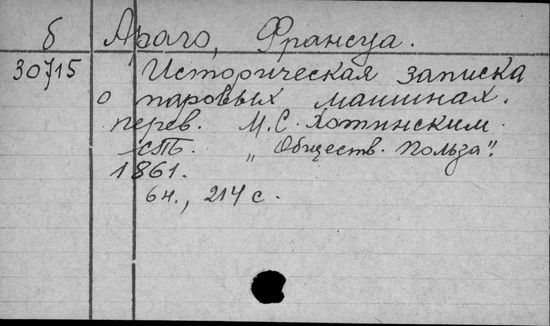 б Араго, Франсуа.
30715 Историческая записка
о паровых машинах.
перев. М.С. Хотинским.
СПБ. "Обществ. Польза".
1861.
6н., 214 с.